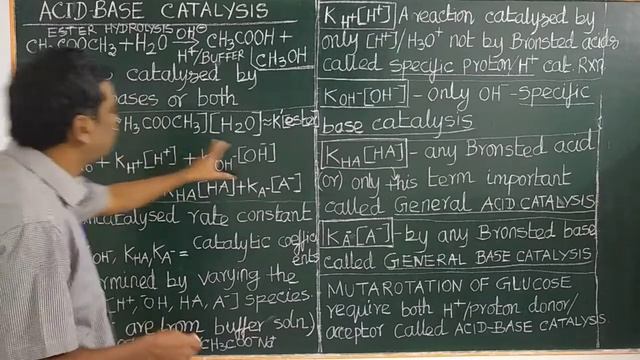 ACID-BASE CATALYSIS
ESTER HYDROLYSIS OH⊖
CH3COOCH3+H2O ⇌ CH3COOH+
H+/BUFFER CH3OH
is catalysed by
bases or both
CH3COOCH3][H2O]≈K'[ester]
+ KH+[H+] + KOH-[OH-]
KHA[HA]+KA-[A-]
uncatalysed rate constant
KHA, KA- = catalytic coefficients
determined by varying the
[H+, OH, HA, A-] species.
are from buffer soln)
CH3COO-Na+
KH+[H+] A reaction catalyzed by
only [H+]/H3O+ not by Bronsted acids
called specific proton/H+ cat. Rxn
KOH-[OH-] - only OH- specific
base catalysis
KHA[HA] - any Bronsted acid
(or) only this term important
called General ACID CATALYSIS
KA-[A-] - by any Bronsted base
called GENERAL BASE CATALYSIS
MUTAROTATION OF GLUCOSE
require both H+/proton donor/
acceptor called ACID-BASE CATALYSIS